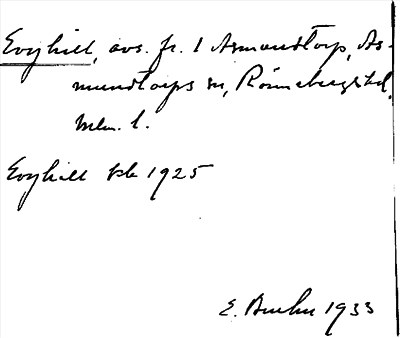 Evyhill, avs. fr. 1 Asmundtorp, As-
mundtorps sn, Rönnebergs hd,
Mlm. l.
Evyhill kb 1925
E. 1933